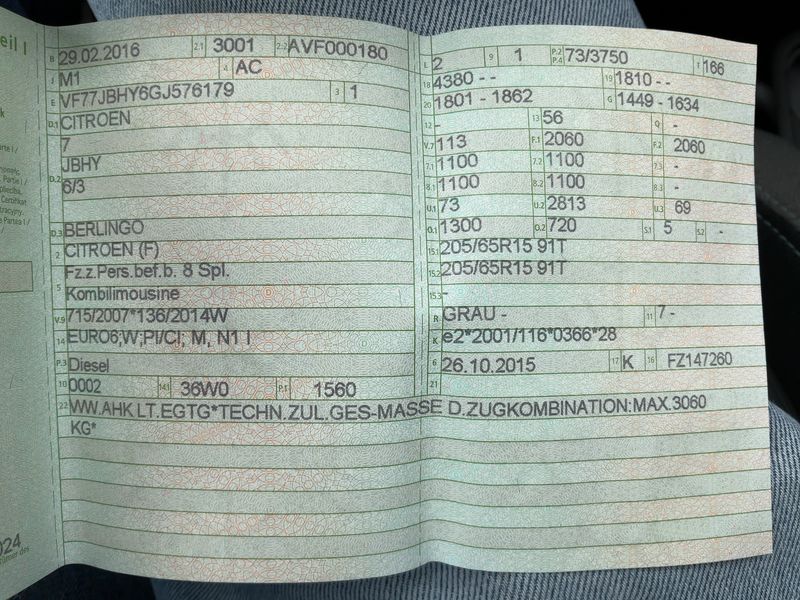 eil I
B 29.02.2016 2.1 3001 2.2 AVF000180
J M1 4 AC
E VF77JBHY6GJ576179 3 1
D.1 CITROEN
7
D.2 JBHY
6/3
D.3 BERLINGO
2 CITROEN (F)
5 Fz.z.Pers.bef.b. 8 Spl.
Kombilimousine
V.9 715/2007*136/2014W
14 EURO6;W;PI/CI; M, N1 I
P.3 Diesel
10 0002 14.1 36W0 P.1 1560
L 2 9 1 P.2 P.4 73/3750 T 166
18 4380 - - 19 1810 - -
20 1801 - 1862 G 1449 - 1634
12 - 13 56 Q -
V.7 113 F.1 2060 F.2 2060
7.1 1100 7.2 1100 7.3 -
8.1 1100 8.2 1100 8.3 -
U.1 73 U.2 2813 U.3 69
O.1 1300 O.2 720 S.1 5 S.2 -
15.1 205/65R15 91T
15.2 205/65R15 91T
15.3 -
R GRAU - 11 7 -
K e2*2001/116*0366*28
6 26.10.2015 17 K 16 FZ147260
21
22 WW.AHK LT.EGTG*TECHN.ZUL.GES-MASSE D.ZUGKOMBINATION:MAX.3060
KG*
024